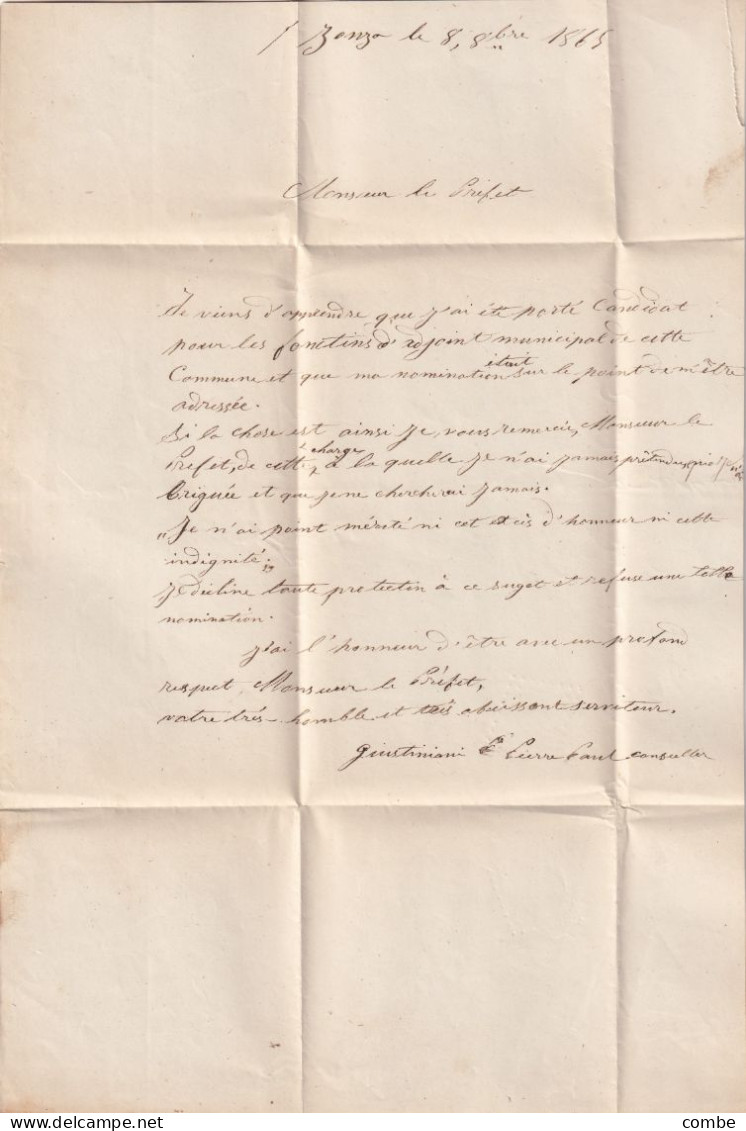 Zonza le 8, 8bre 1865
Monsieur le Préfet
Je viens d'apprendre que j'ai été porté Candidat
pour les fonctins d'adjoint municipal de cette
Commune et que ma nomination était sur le point de m'être
adressée.
Si la chose est ainsi Je, vous remercie, Monsieur le
Préfet, de cette charge à la quelle Je n'ai jamais prétendu, que je n'ai
briguée et que je ne chercherai Jamais.
"Je n'ai point mérité ni cet excis d'honneur ni cette
indignité;"
Je dicline toute protectin à ce suget et refuse une telle
nomination.
J'ai l'honneur d'être avec un profond
respect, Monsieur le Préfet,
votre très-homble et très obéissant serviteur.
Giustiniani Pierre Paul conseiller
delcampe.net
combe